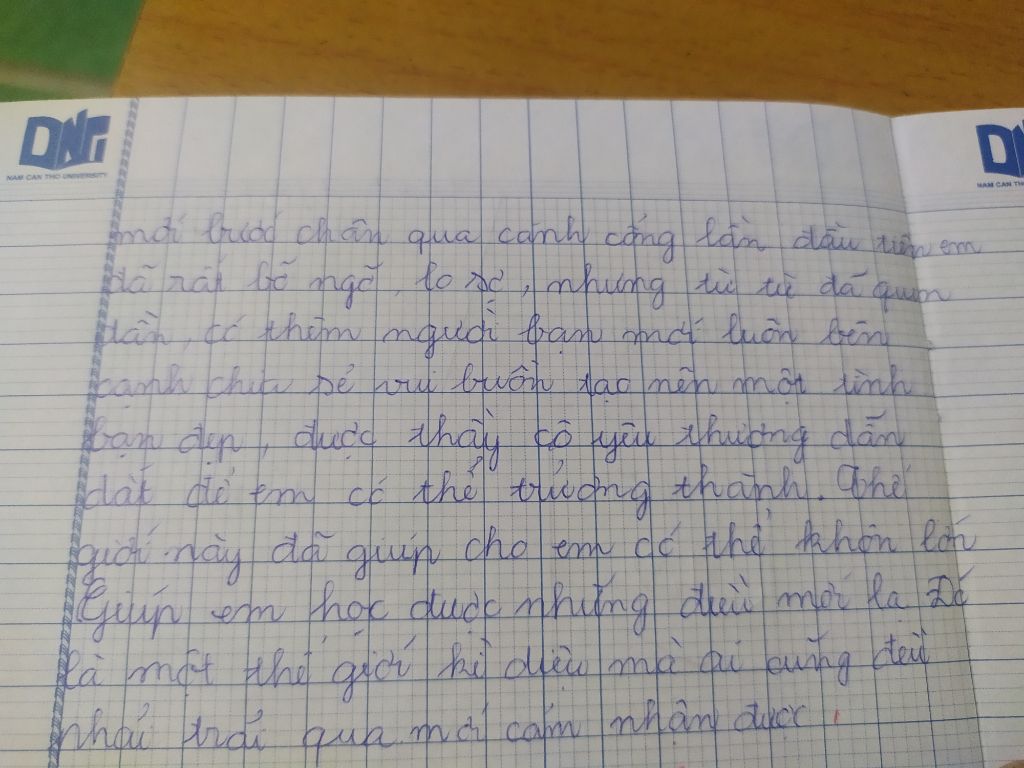 DNC
NAM CAN THO UNIVERSITY
NAM CAN THO
mới bước chân qua cánh cổng lần đầu tiên em
đã rất bỡ ngỡ, lo sợ, nhưng từ từ đã quen
dần, có thêm người bạn mới luôn bên
cạnh chia sẻ vui buồn tạo nên một tình
bạn đẹp, được thầy cô yêu thương dẫn
dắt để em có thể trưởng thành. Thế
giới này đã giúp cho em có thể khôn lớn
Giúp em học được những điều mới lạ Đó
là một thế giới kì diệu mà ai cũng đều
phải trải qua mới cảm nhận được